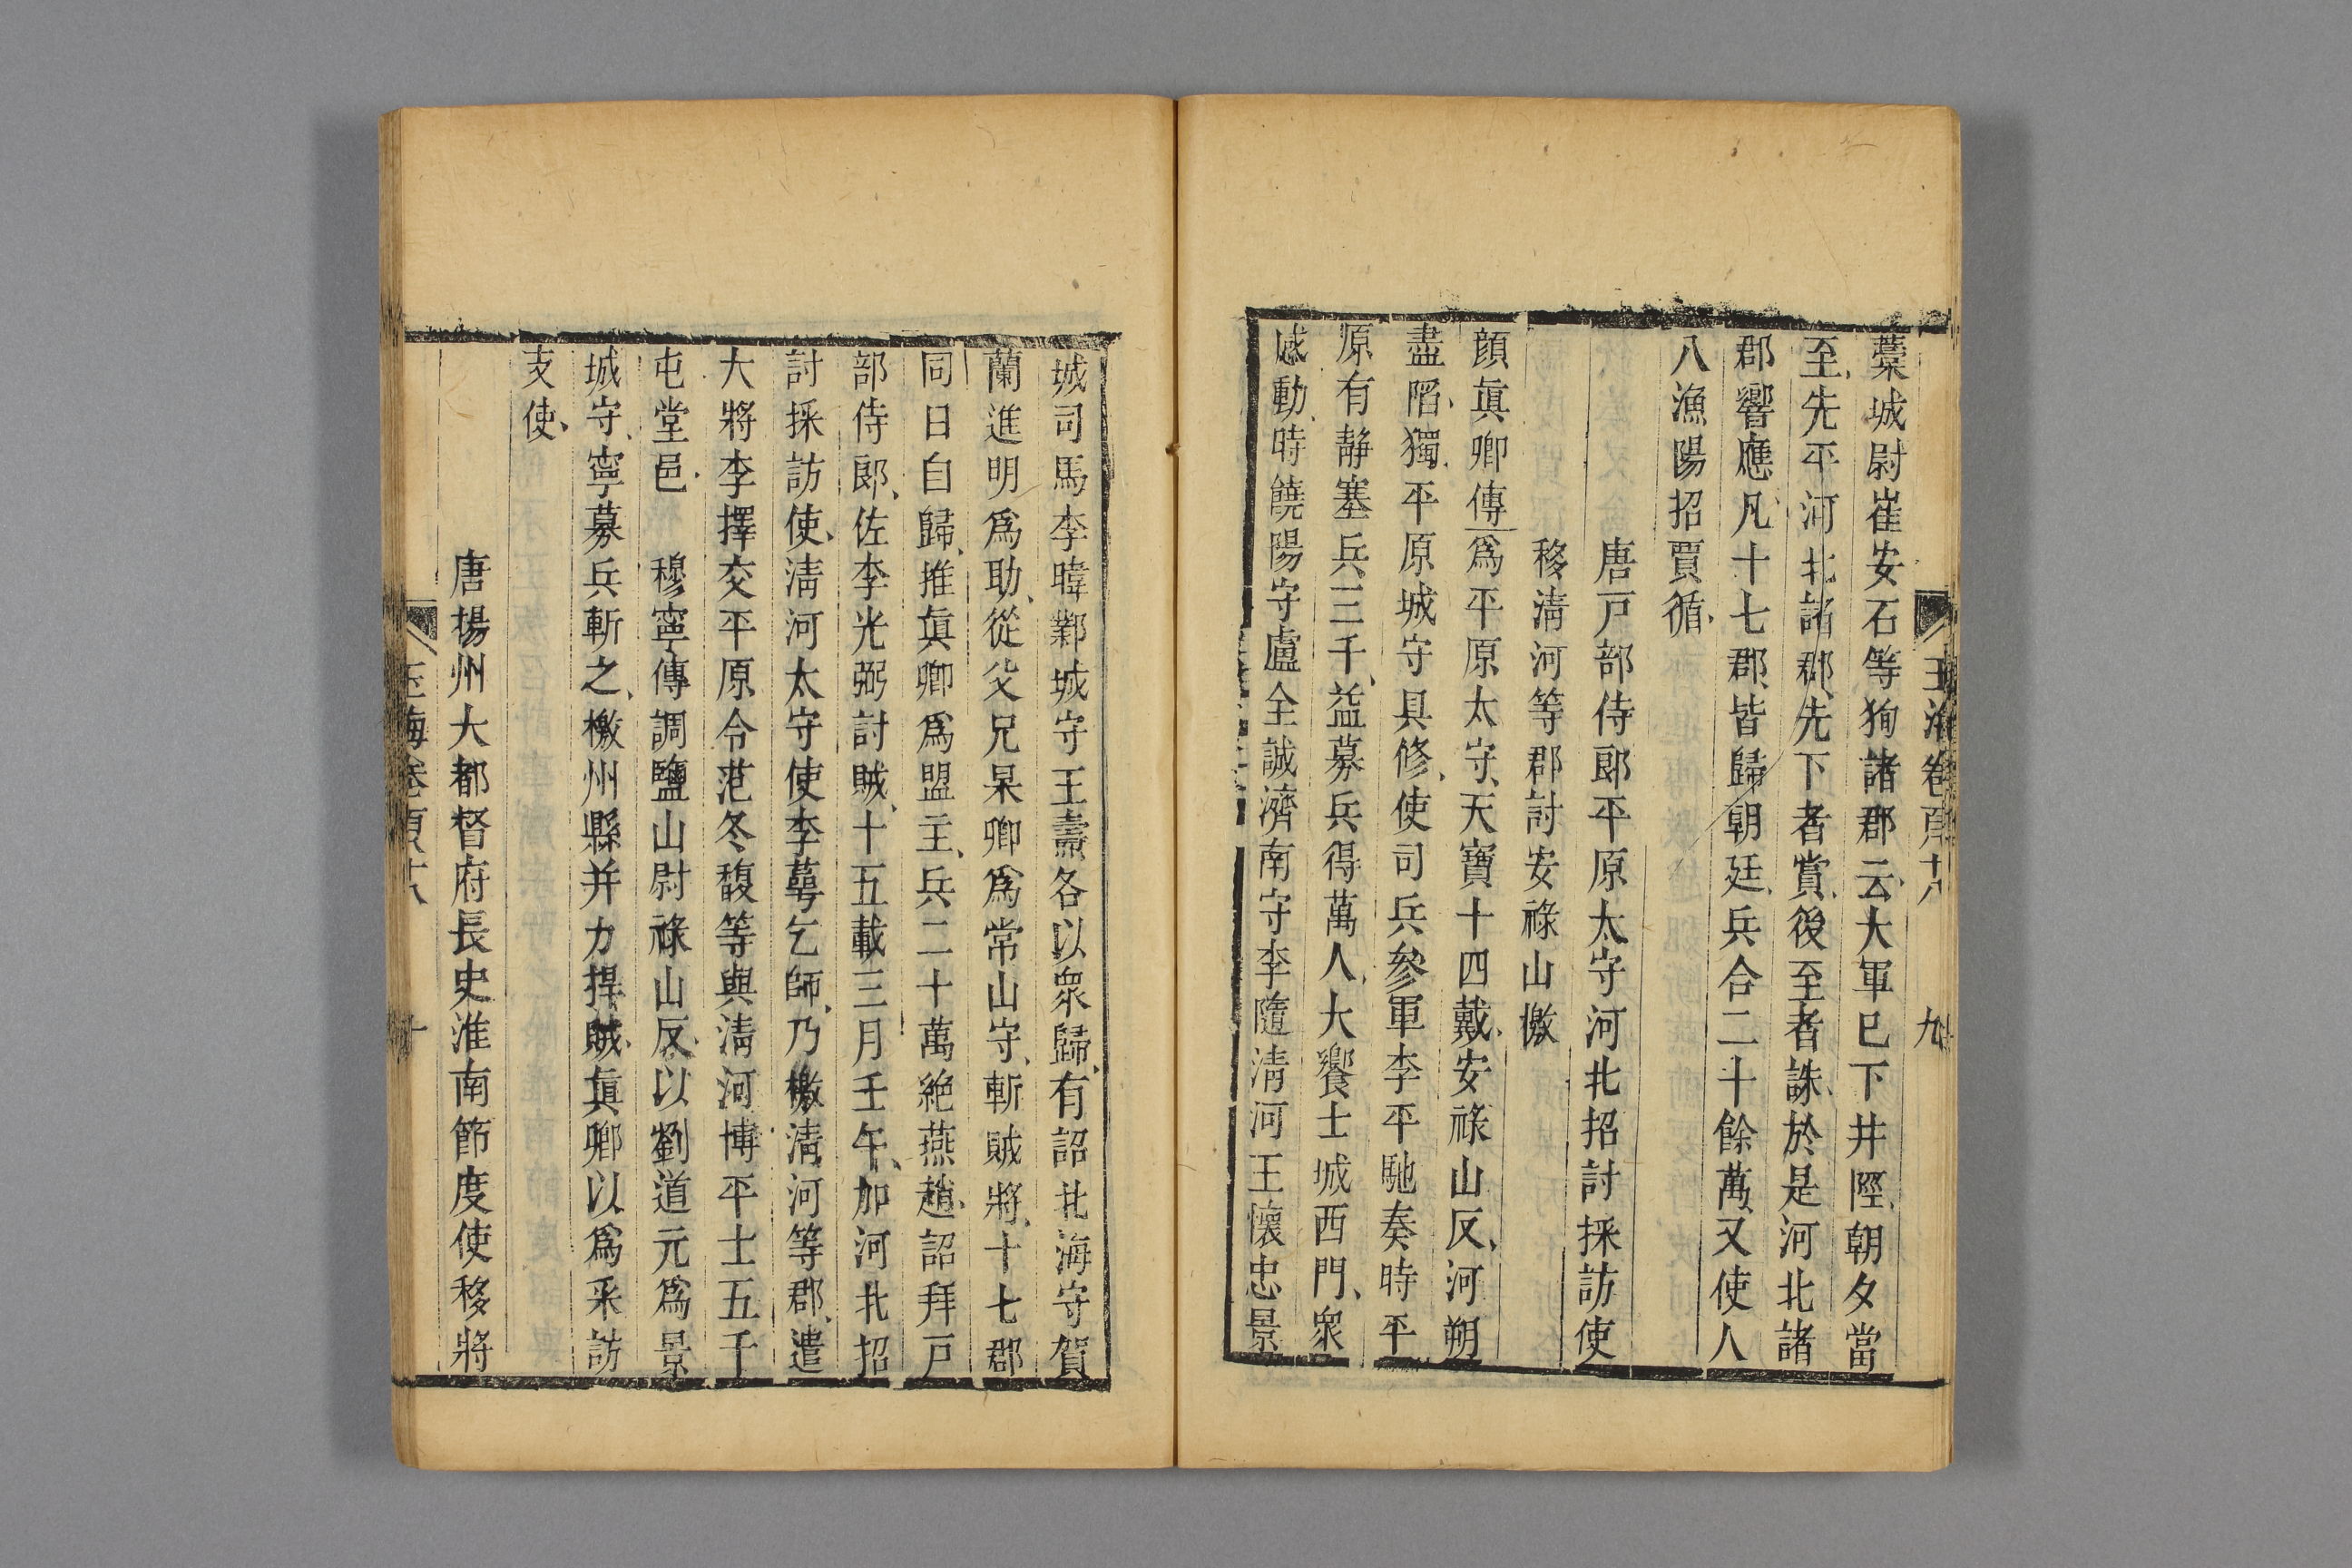 藁城尉崔安石等狥諸郡云大軍已下井陘朝夕當
至先平河北諸郡先下者賞後至者誅於是河北諸
郡響應凡十七郡皆歸朝廷兵合二十餘萬又使人
入漁陽招賈循
唐戸部侍郎平原太守河北招討採訪使
移淸河等郡討安祿山檄
顔眞卿傳爲平原太守天寶十四載安祿山反河朔
盡陷獨平原城守具修使司兵參軍李平馳奏時平
原有靜塞兵三千益募兵得萬人大饗士城西門衆
感動時饒陽守盧全誠濟南守李隨淸河王懷忠景
城司馬李暐鄴城守王燾各以衆歸有詔北海守賀
蘭進明爲助從父兄杲卿爲常山守斬賊將十七郡
同日自歸推眞卿爲盟主兵二十萬絶燕趙詔拜戸
部侍郎佐李光弼討賊十五載三月壬午加河北招
討採訪使淸河太守使李蕚乞師乃檄淸河等郡遣
大將李擇交平原令范冬馥等與淸河博平士五千
屯堂邑　穆寧傳調鹽山尉祿山反以劉道元爲景
城守寧募兵斬之檄州縣并力捍賊眞卿以爲采訪
支使
唐揚州大都督府長史淮南節度使移將
玉海卷百八十八
十